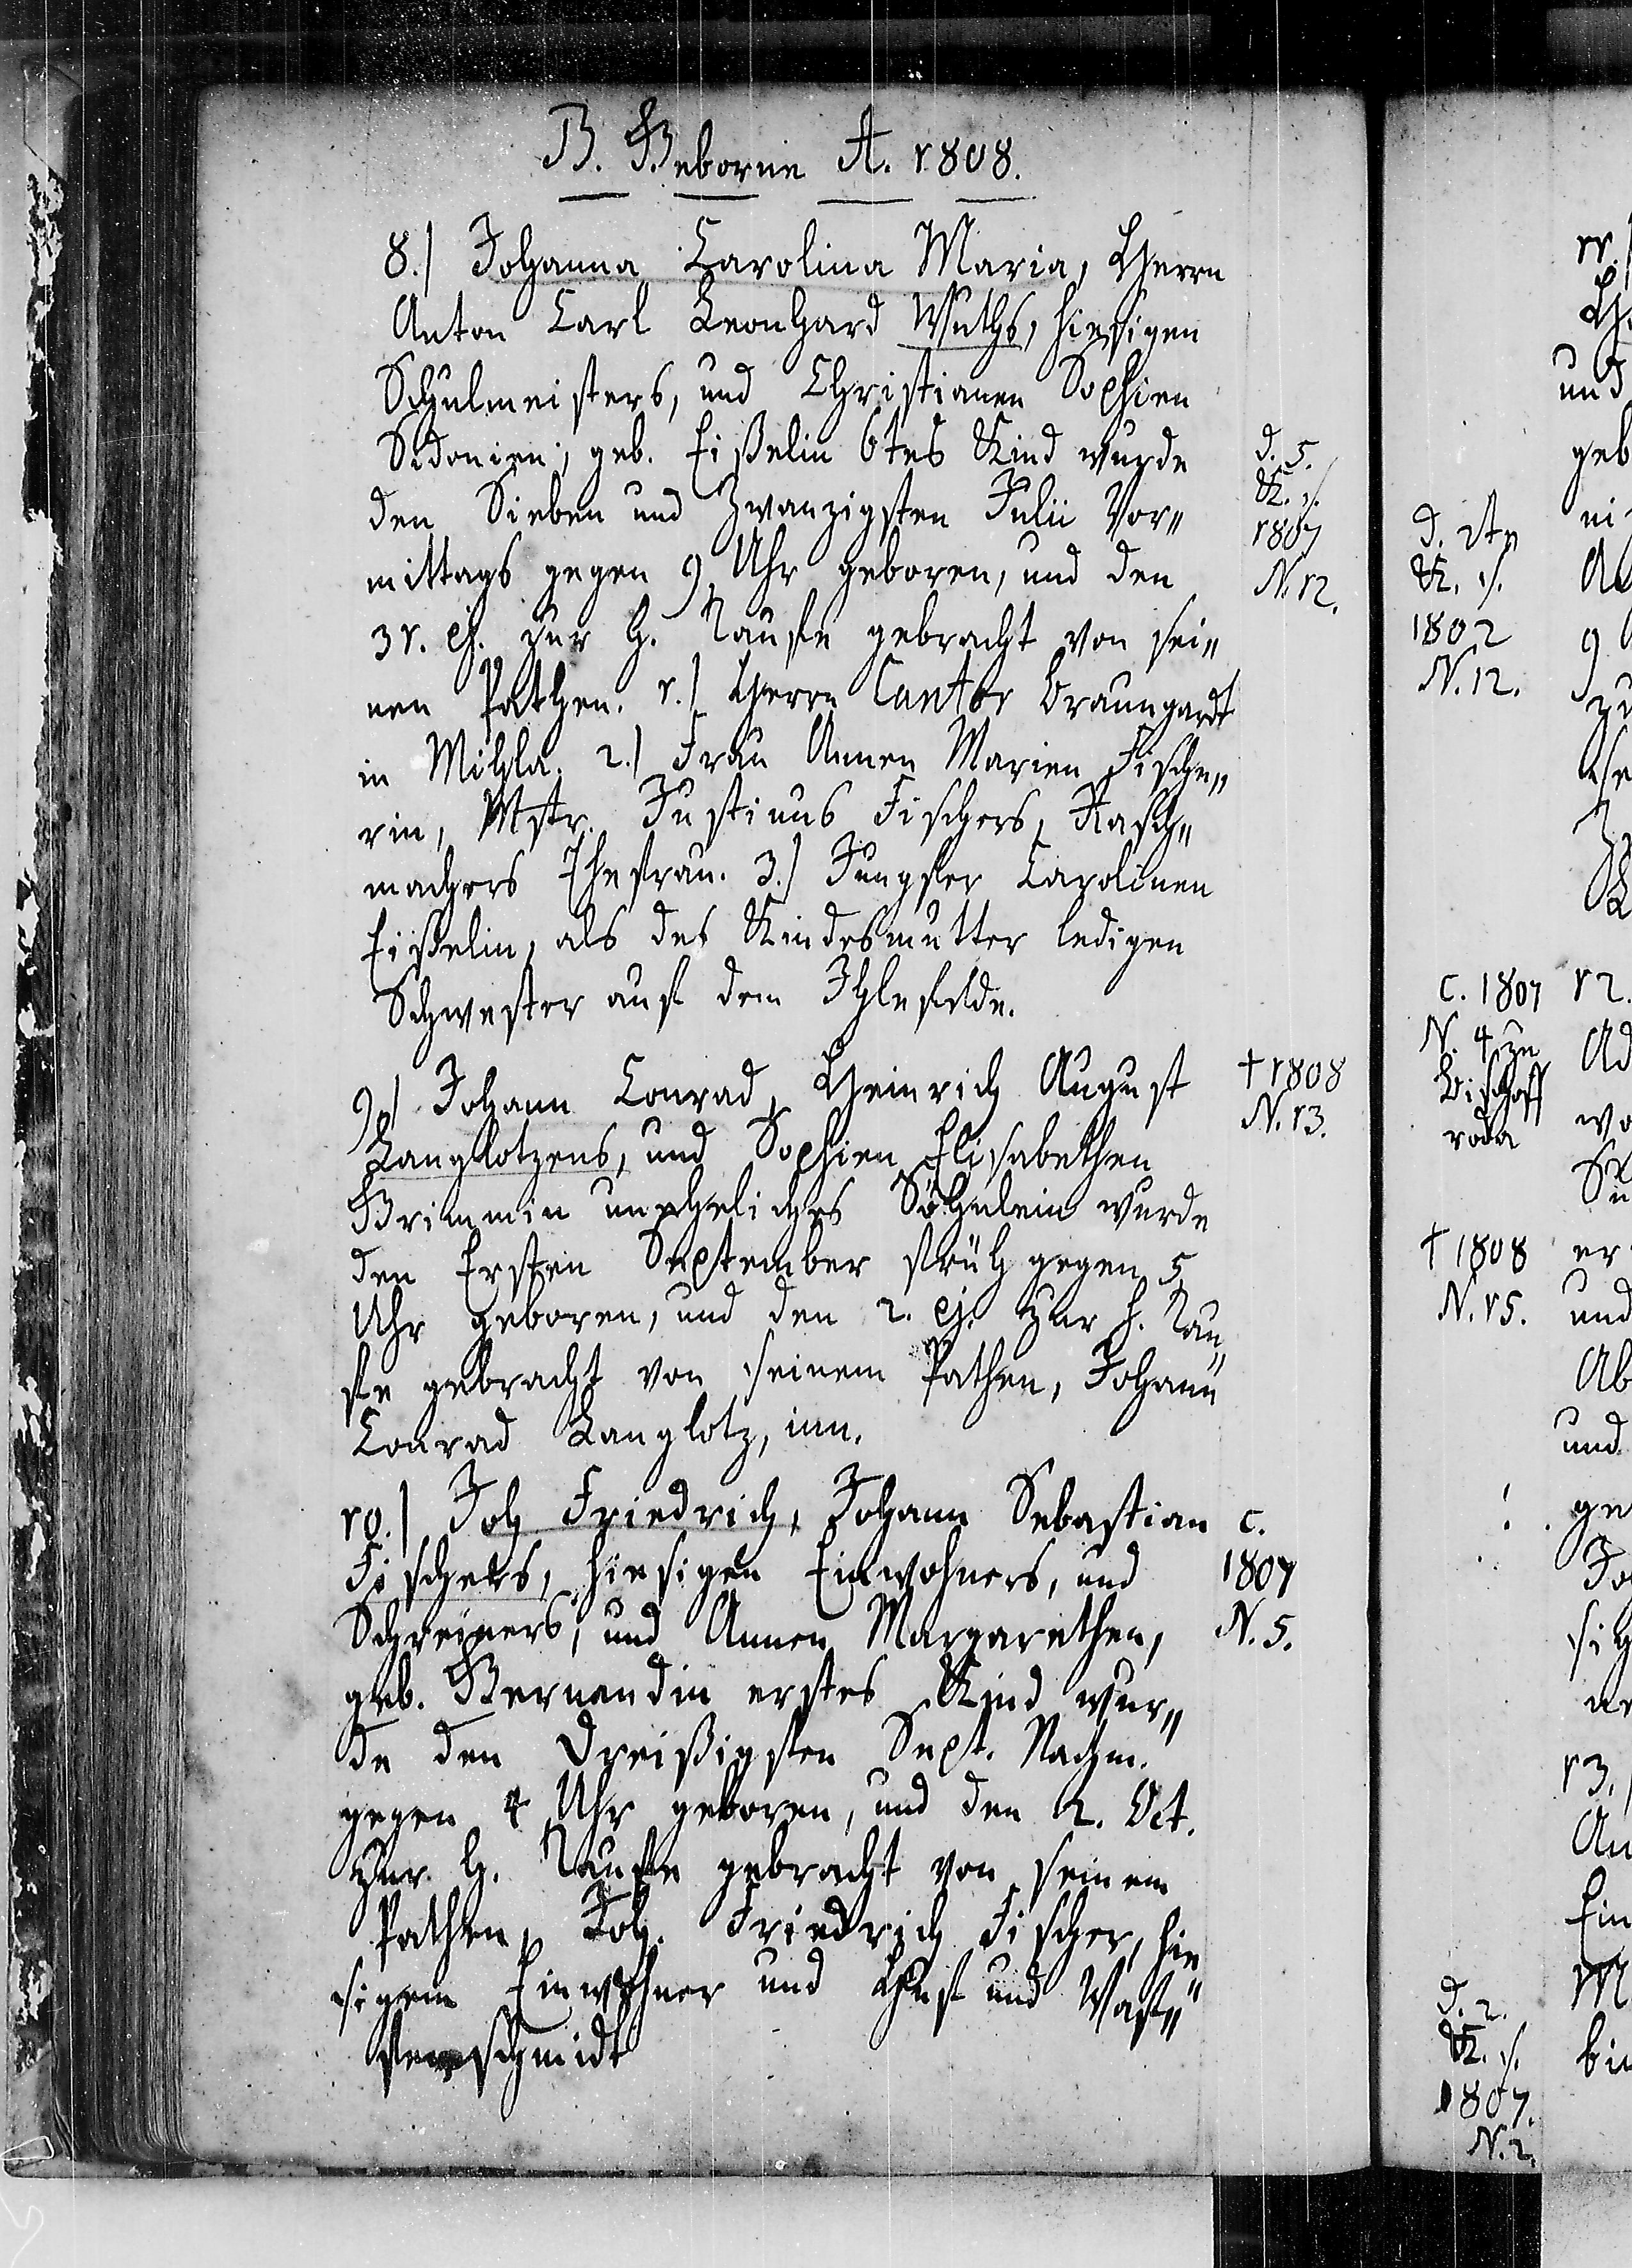 B. Geborne A. 1808.
8.) Johanna Carolina Maria, Herrn
Anton Carl Leonhard Wuths, hiesigen
Schulmeisters, und Christianen Sophien
Sidonien, geb. Eißelin 6tes Kind wurde
den Sieben und Zwanzigsten Julii Vor„
mittags gegen 9 Uhr geboren, und den
31. ej. zur H. Taufe gebracht von sei„
nen Pathen. 1.) Herrn Cantor Braungardt
in Mihla. 2.) Frau Annen Marien Fische„
rin, Mstr. Justinus Fischers, Rasch„
machers Ehefrau. 3.) Jungfer Carolinen
Eißelin, als der Kindesmutter ledigen
Schwester auf dem Ihlefelde.
d. 5.
K. s.
1807
N. 12.
9.) Johann Conrad, Heinrich August
Langlotzens, und Sophien Elisabethen
Grimmin uneheliches Söhnlein wurde
den Ersten September früh gegen 5
Uhr geboren, und den 2. ej. zur h. Tau„
fe gebracht von seinem Pathen, Johann
Conrad Langlotz, iun.
† 1808
N. 13.
10.) Joh Friedrich, Johann Sebastian
Fischers, hiesigen Einwohners, und
Schreiners, und Annen Margarethen,
geb. Bernandin erstes Kind wur„
de den Dreißigsten Sept. Nachm.
gegen 4 Uhr geboren, und den 2. Oct.
zur H. Taufe gebracht von seinem
Pathen, Joh. Friedrich Fischer, hie
sigem Einwohner und Huf und Waf„
fenschmidt
c.
1807
N. 5.
K. s.
1802
N. 12.
c. 1807
N. 4 zu
Bischoff
roda
† 1808
N. 15.
d. 2.
K. s.
1807.
N. 2.
11.)
und
geb
12.
Ad
und
Ab
und
ge
13.
Ein